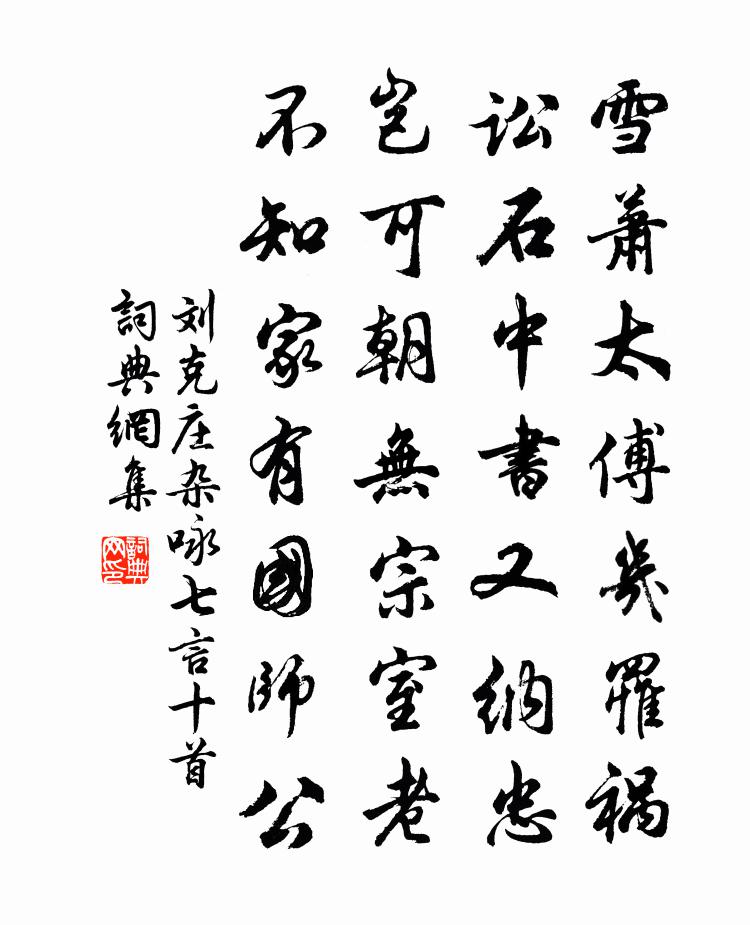 雪蕭太傅幾罹禍
訟石中書又納忠
豈可朝無宗室老
不知家有國師公
刘克庄杂咏七言十首
詞典網集
詞典網印